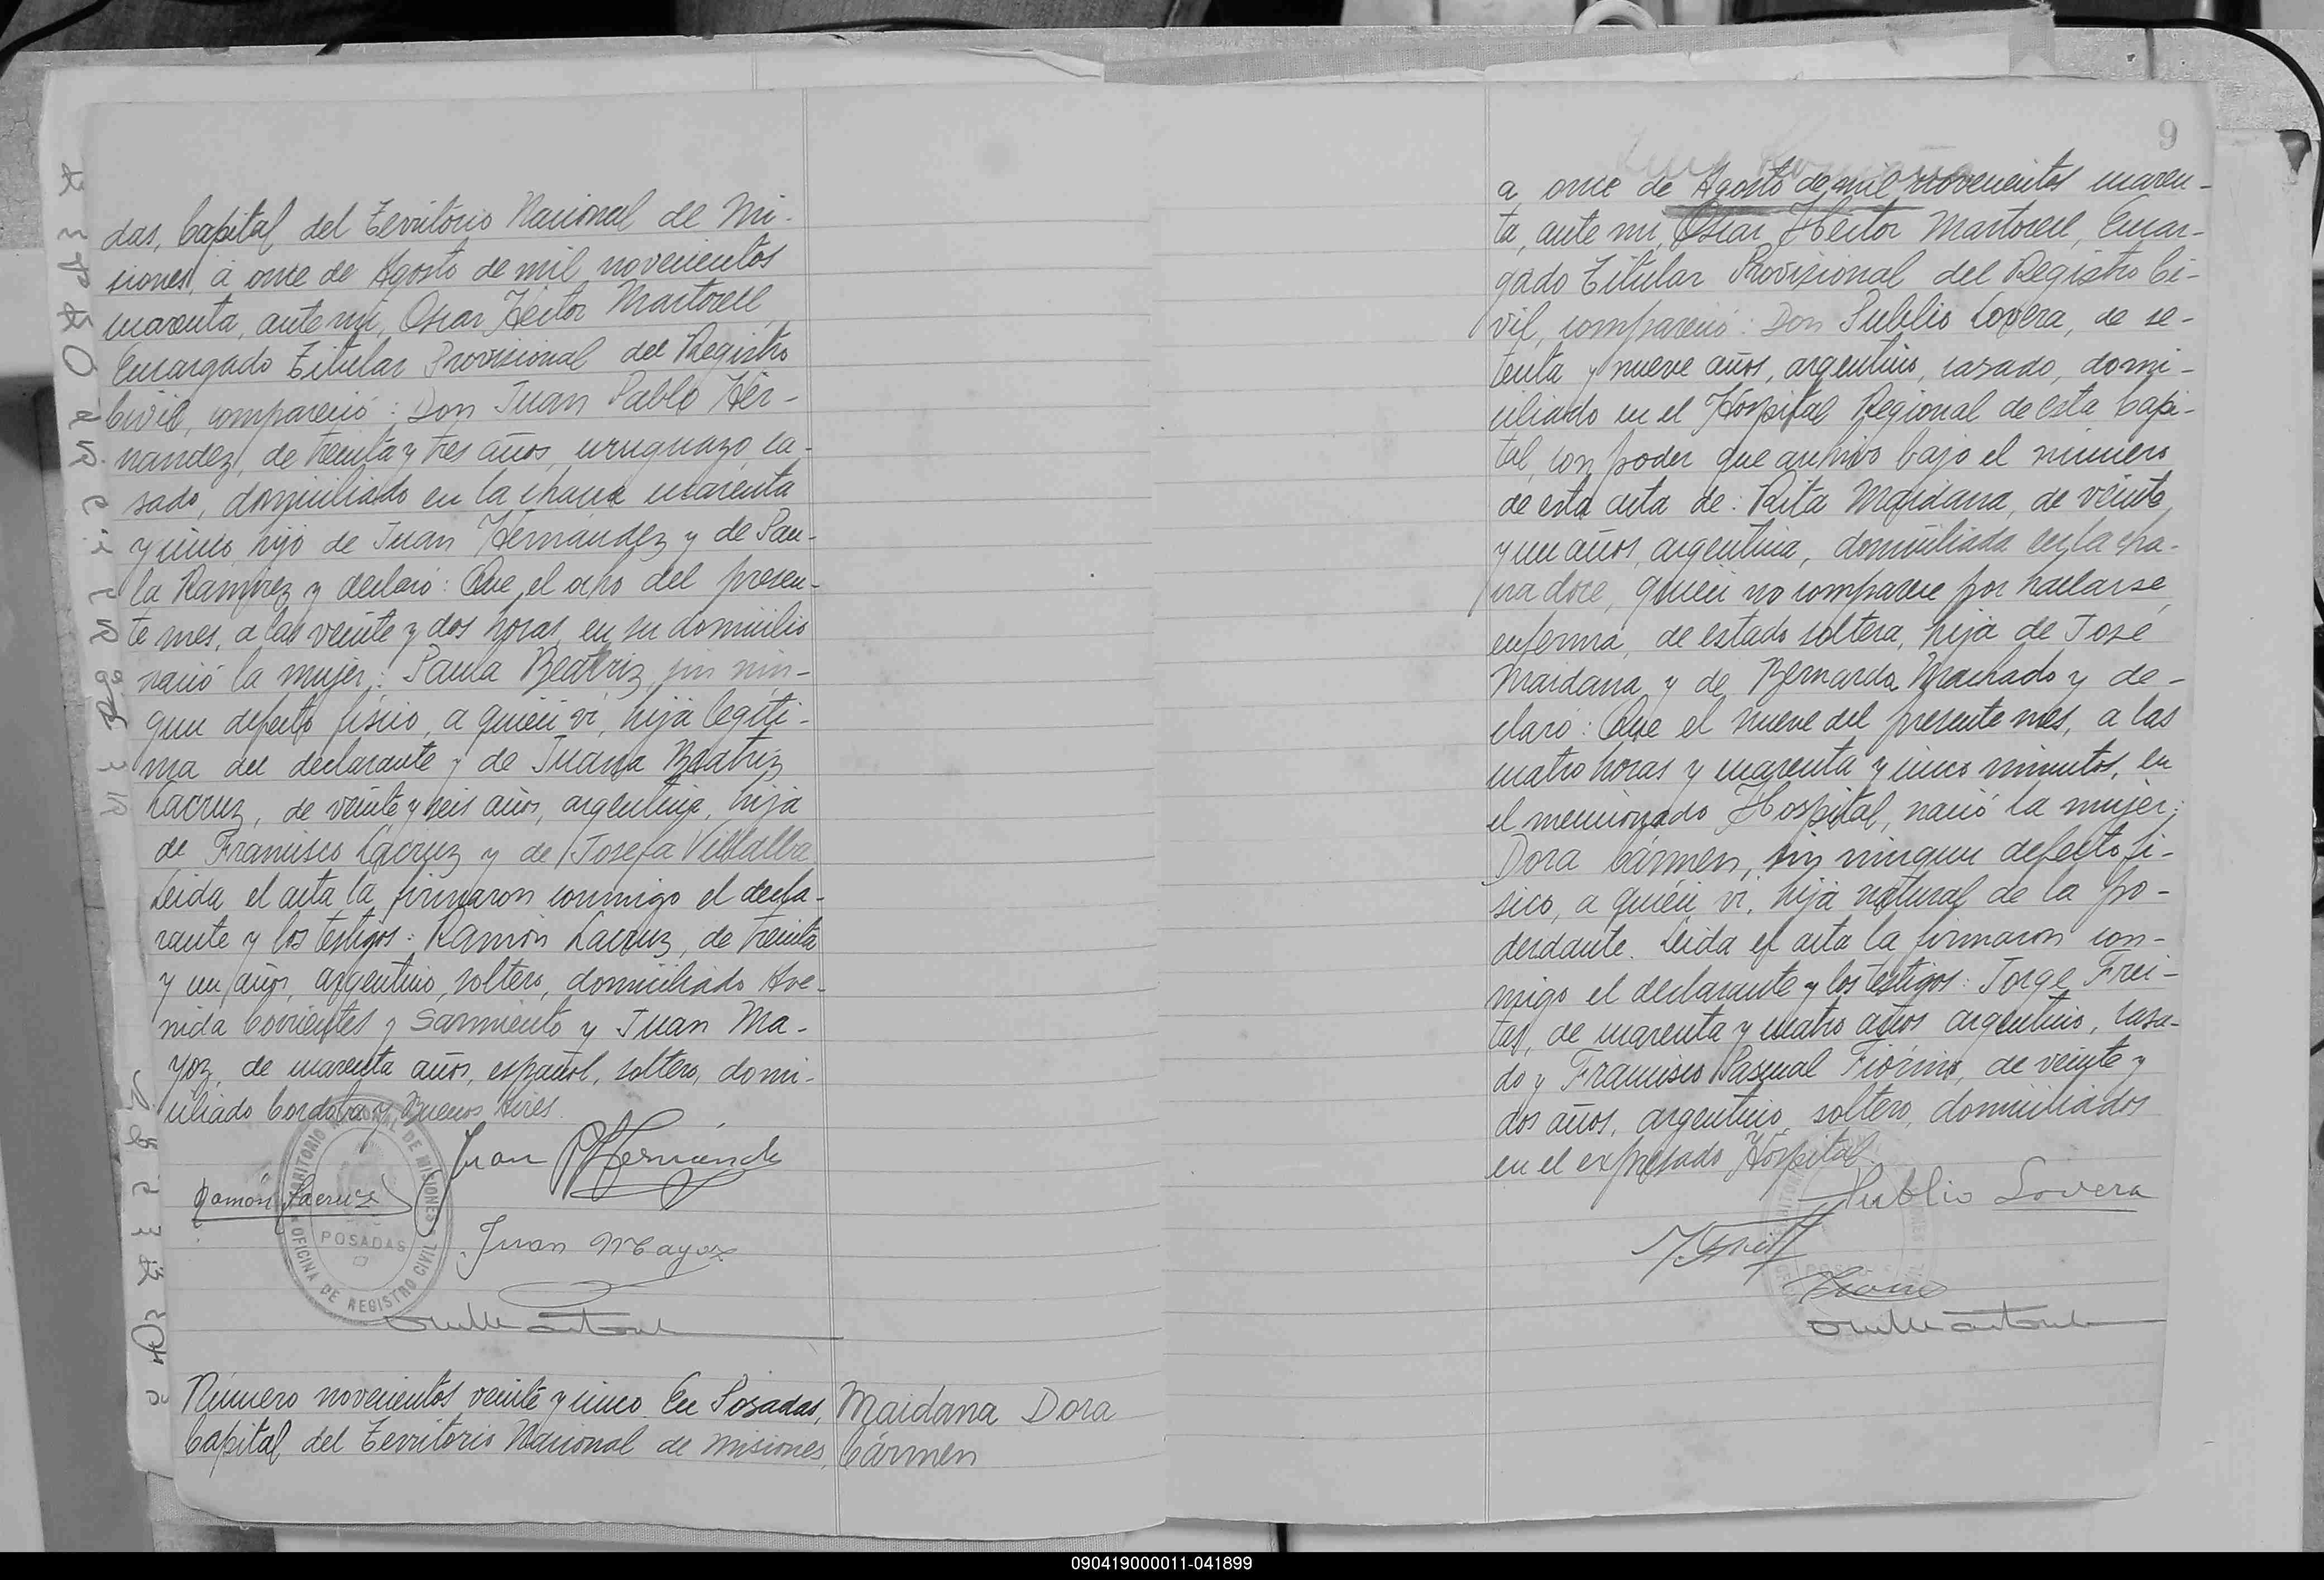 das, Capital del Territorio Nacional de Mi-
siones, a once de Agosto de mil novecientos
cuarenta, ante mi, Oscar Hector Martorell,
Encargado Titular Provisional del Registro
Civil, compareció: Don Juan Pablo Her-
nandez, de treinta y tres años, uruguayo, ca-
sado, domiciliado en la chacra cuarenta
y cinco, hijo de Juan Hernandez y de Pau-
la Ramirez y declaró: Que el ocho del presen-
te mes, a las veinte y dos horas, en su domicilio
nació la mujer: Paula Beatriz, sin nin-
gun defecto fisico, a quién vi, hija legiti-
ma del declarante y de Juana Beatriz
Lacruz, de veinte y seis años, argentina, hija
de Francisco Lacruz y de Josefa Villalba.
Leida el acta la firmaron conmigo el decla-
rante y los testigos: Ramón Lacruz, de treinta
y un años, argentino, soltero, domiciliado Ave-
nida Corrientes y Sarmiento y Juan Ma-
yoz, de cuarenta años, español, soltero, domi-
ciliado Cordoba y Buenos Aires.
Juan P Hernández
Ramón Lacruz
Juan Mayoz
TERRITORIO NACIONAL DE MISIONES
POSADAS
OFICINA DE REGISTRO CIVIL
Número novecientos veinte y cinco. En Posadas,
Capital del Territorio Nacional de Misiones,
Maidana Dora
Cármen
9
a once de Agosto de mil novecientos cuaren-
ta, ante mi, Oscar Hector Martorell, Encar-
gado Titular Provisional del Registro Ci-
vil, compareció: Don Publio Lovera, de se-
tenta y nueve años, argentino, casado, domi-
ciliado en el Hospital Regional de esta Capi-
tal, con poder que archivo bajo el número
de esta acta de: Rita Maidana, de veinte
y un años, argentina, domiciliada en la cha-
cra doce, quién no comparece por hallarse
enferma, de estado soltera, hija de José
Maidana y de Bernarda Machado y de-
claró: Que el nueve del presente mes, a las
cuatro horas y cuarenta y cinco minutos, en
el mencionado Hospital, nació la mujer:
Dora Cármen, sin ningun defecto fi-
sico, a quién vi, hija natural de la po-
derdante. Leida el acta la firmaron con-
migo el declarante y los testigos: Jorge Frei-
tas, de cuarenta y cuatro años argentino, casa-
do y Francisco Pascual Fiorino, de veinte y
dos años, argentino, soltero, domiciliados
en el expresado Hospital.
Publio Lovera
090419000011-041899